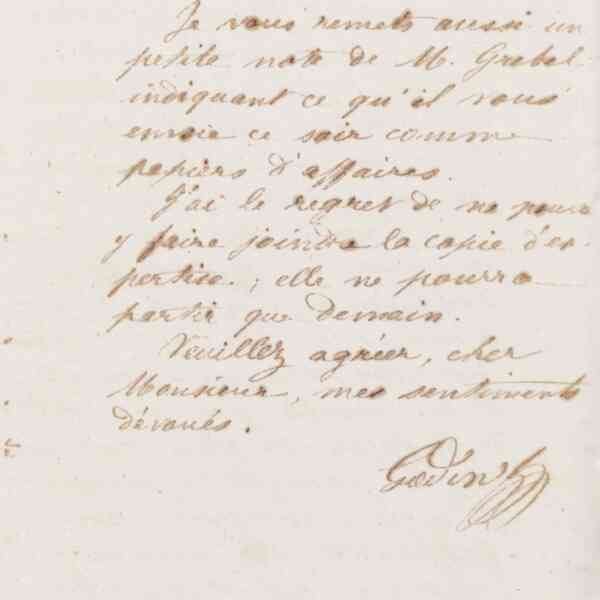 Je vous remets aussi un
petite note de M. Grebel
indiquant ce qu'il vous
envoie ce soir comme
papiers d'affaires.
J'ai le regret de ne pouvoir
y faire joindre la copie d'ex-
pertise. ; elle ne pourra
partir que demain.
Veuillez agréer, cher
Monsieur, mes sentiments
dévoués.
Godin